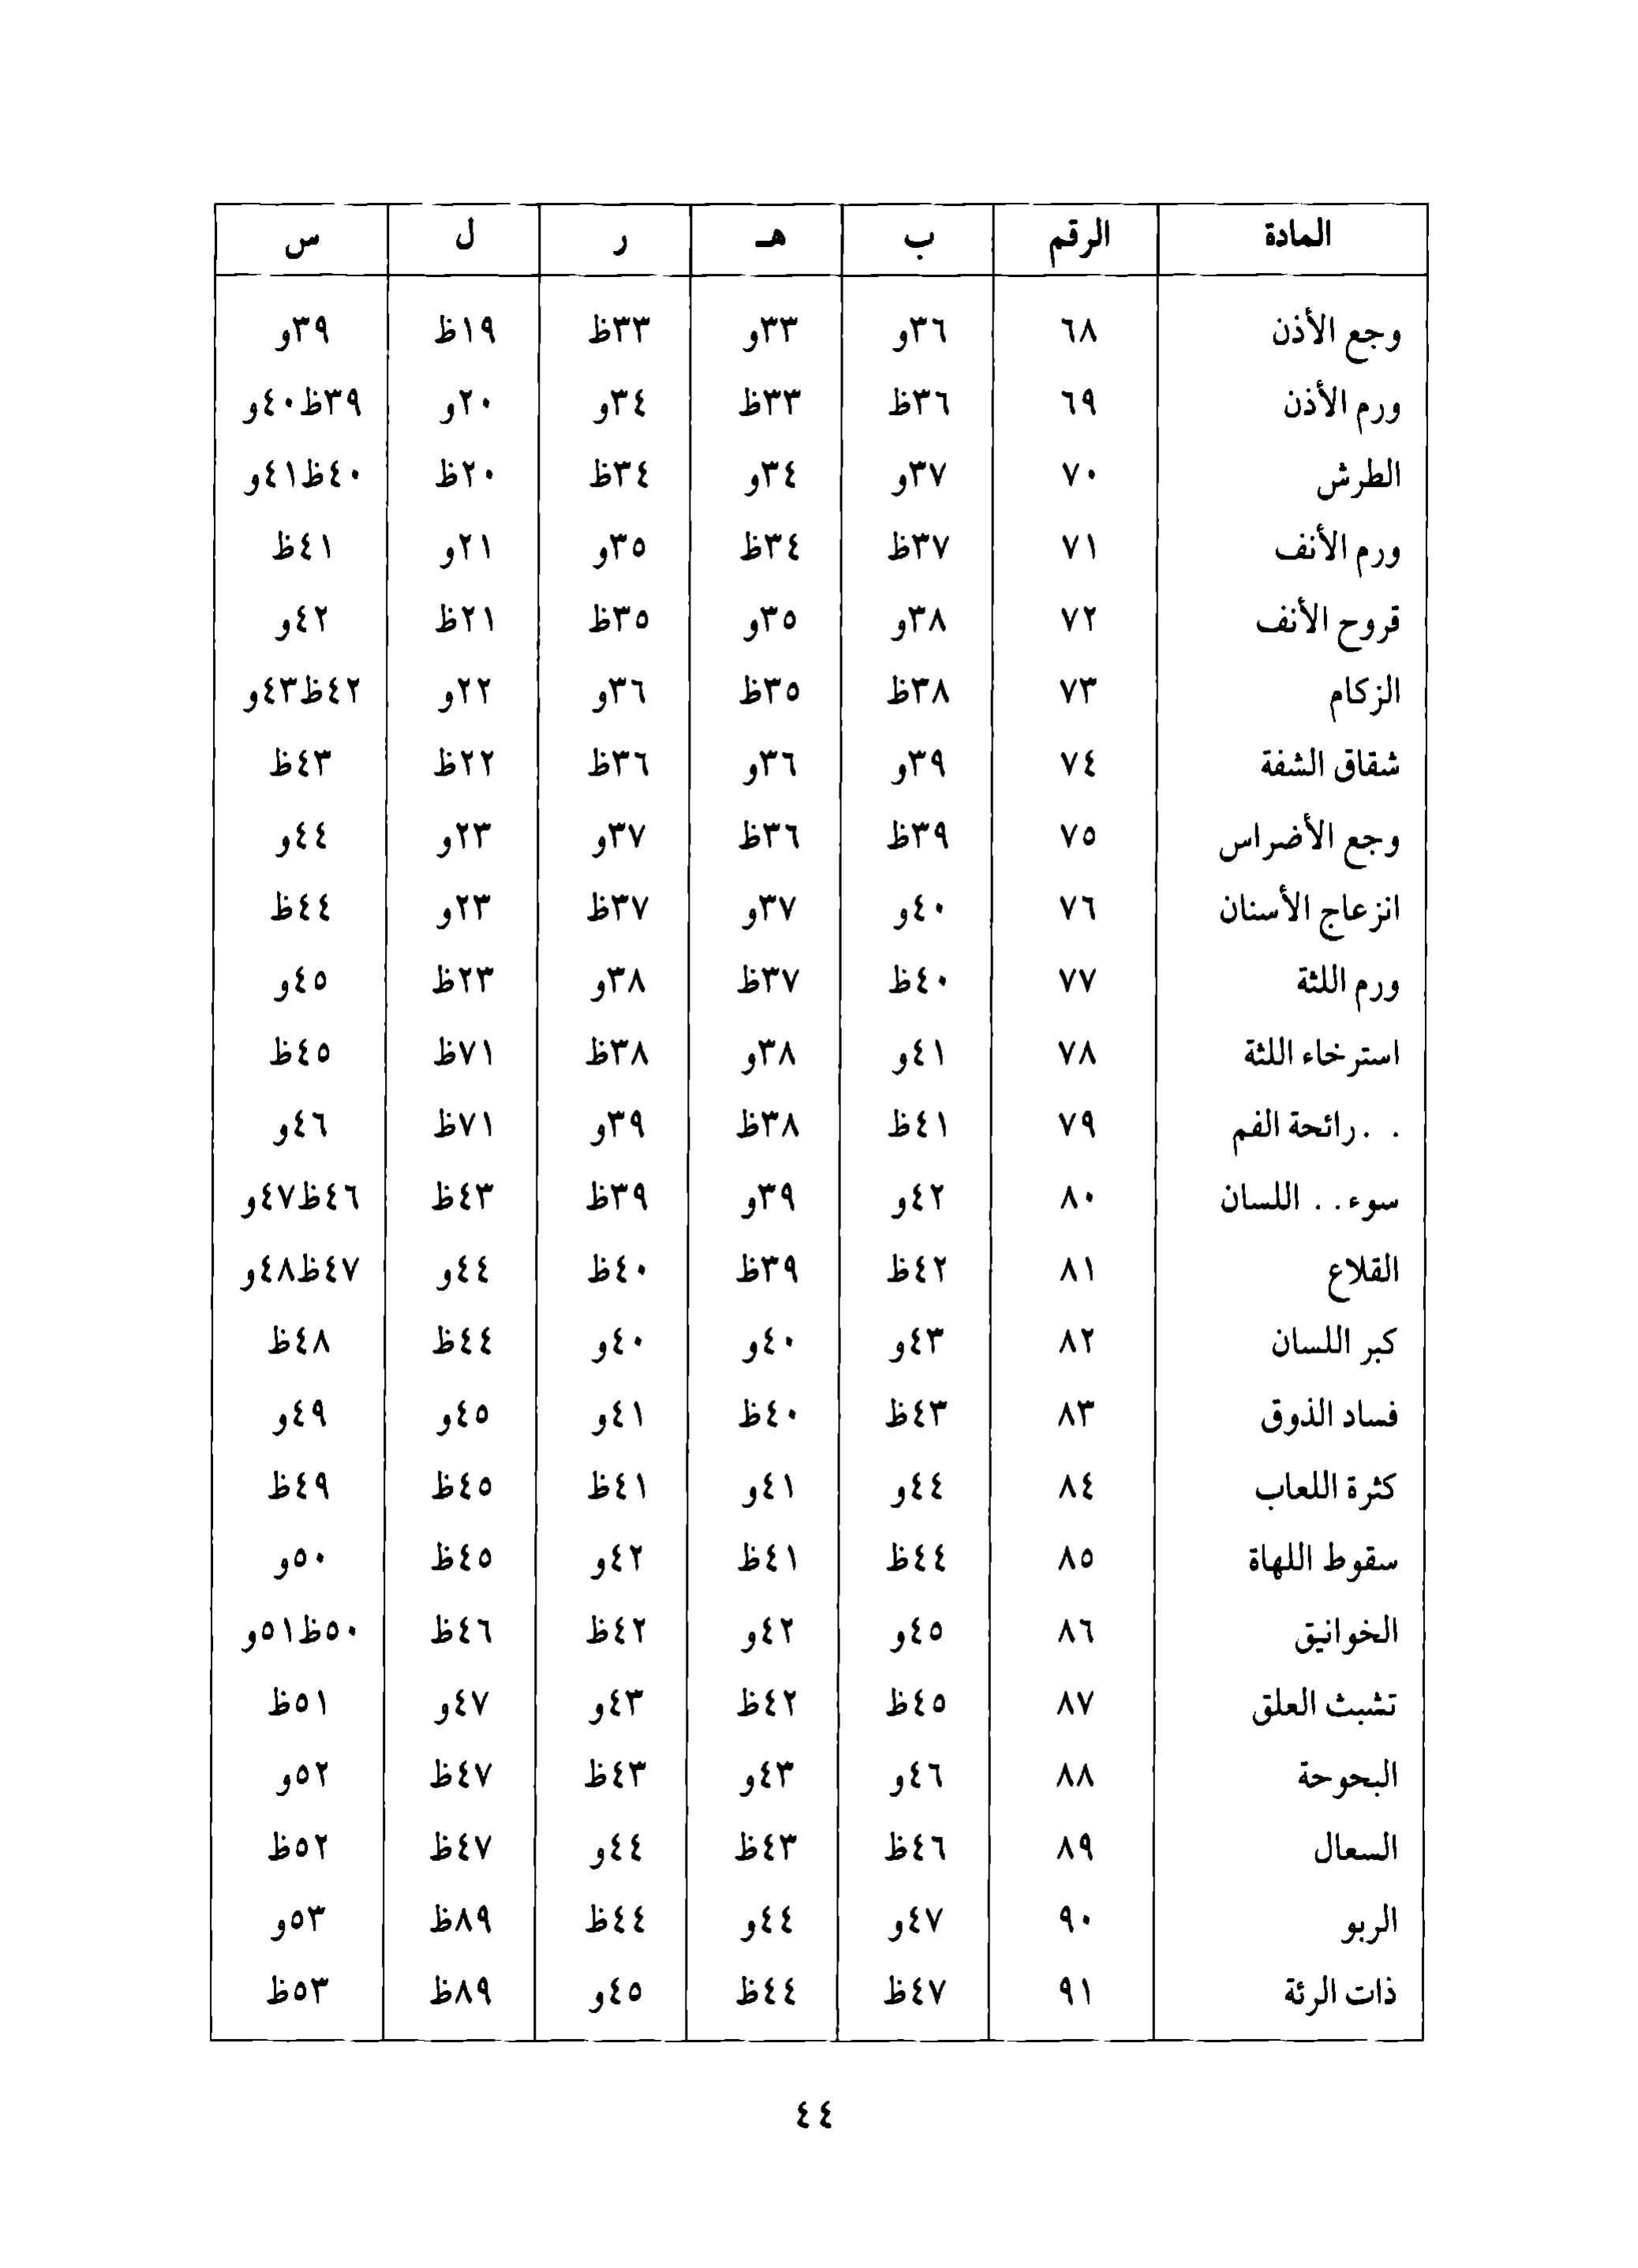 المادة الرقم ب هـ ر ل س
وجع الأذن ٦٨ ٣٦و ٣٣و ٣٣ظ ١٩ظ ٣٩و
ورم الأذن ٦٩ ٣٦ظ ٣٣ظ ٣٤و ٢٠و ٣٩ظ٤٠و
الطرش ٧٠ ٣٧و ٣٤و ٣٤ظ ٢٠ظ ٤٠ظ٤١و
ورم الأنف ٧١ ٣٧ظ ٣٤ظ ٣٥و ٢١و ٤١ظ
قروح الأنف ٧٢ ٣٨و ٣٥و ٣٥ظ ٢١ظ ٤٢و
الزكام ٧٣ ٣٨ظ ٣٥ظ ٣٦و ٢٢و ٤٢ظ٤٣و
شقاق الشفة ٧٤ ٣٩و ٣٦و ٣٦ظ ٢٢ظ ٤٣ظ
وجع الأضراس ٧٥ ٣٩ظ ٣٦ظ ٣٧و ٢٣و ٤٤و
انزعاج الأسنان ٧٦ ٤٠و ٣٧و ٣٧ظ ٢٣و ٤٤ظ
ورم اللثة ٧٧ ٤٠ظ ٣٧ظ ٣٨و ٢٣ظ ٤٥و
استرخاء اللثة ٧٨ ٤١و ٣٨و ٣٨ظ ٧١ظ ٤٥ظ
. .رائحة الفم ٧٩ ٤١ظ ٣٨ظ ٣٩و ٧١ظ ٤٦و
سوء. . اللسان ٨٠ ٤٢و ٣٩و ٣٩ظ ٤٣ظ ٤٦ظ٤٧و
القلاع ٨١ ٤٢ظ ٣٩ظ ٤٠ظ ٤٤و ٤٧ظ٤٨و
كبر اللسان ٨٢ ٤٣و ٤٠و ٤٠و ٤٤ظ ٤٨ظ
فساد الذوق ٨٣ ٤٣ظ ٤٠ظ ٤١و ٤٥و ٤٩و
كثرة اللعاب ٨٤ ٤٤و ٤١و ٤١ظ ٤٥ظ ٤٩ظ
سقوط اللهاة ٨٥ ٤٤ظ ٤١ظ ٤٢و ٤٥ظ ٥٠و
الخوانيق ٨٦ ٤٥و ٤٢و ٤٢ظ ٤٦ظ ٥٠ظ٥١و
تشبث العلق ٨٧ ٤٥ظ ٤٢ظ ٤٣و ٤٧و ٥١ظ
البحوحة ٨٨ ٤٦و ٤٣و ٤٣ظ ٤٧ظ ٥٢و
السعال ٨٩ ٤٦ظ ٤٣ظ ٤٤و ٤٧ظ ٥٢ظ
الربو ٩٠ ٤٧و ٤٤و ٤٤ظ ٨٩ظ ٥٣و
ذات الرئة ٩١ ٤٧ظ ٤٤ظ ٤٥و ٨٩ظ ٥٣ظ
٤٤